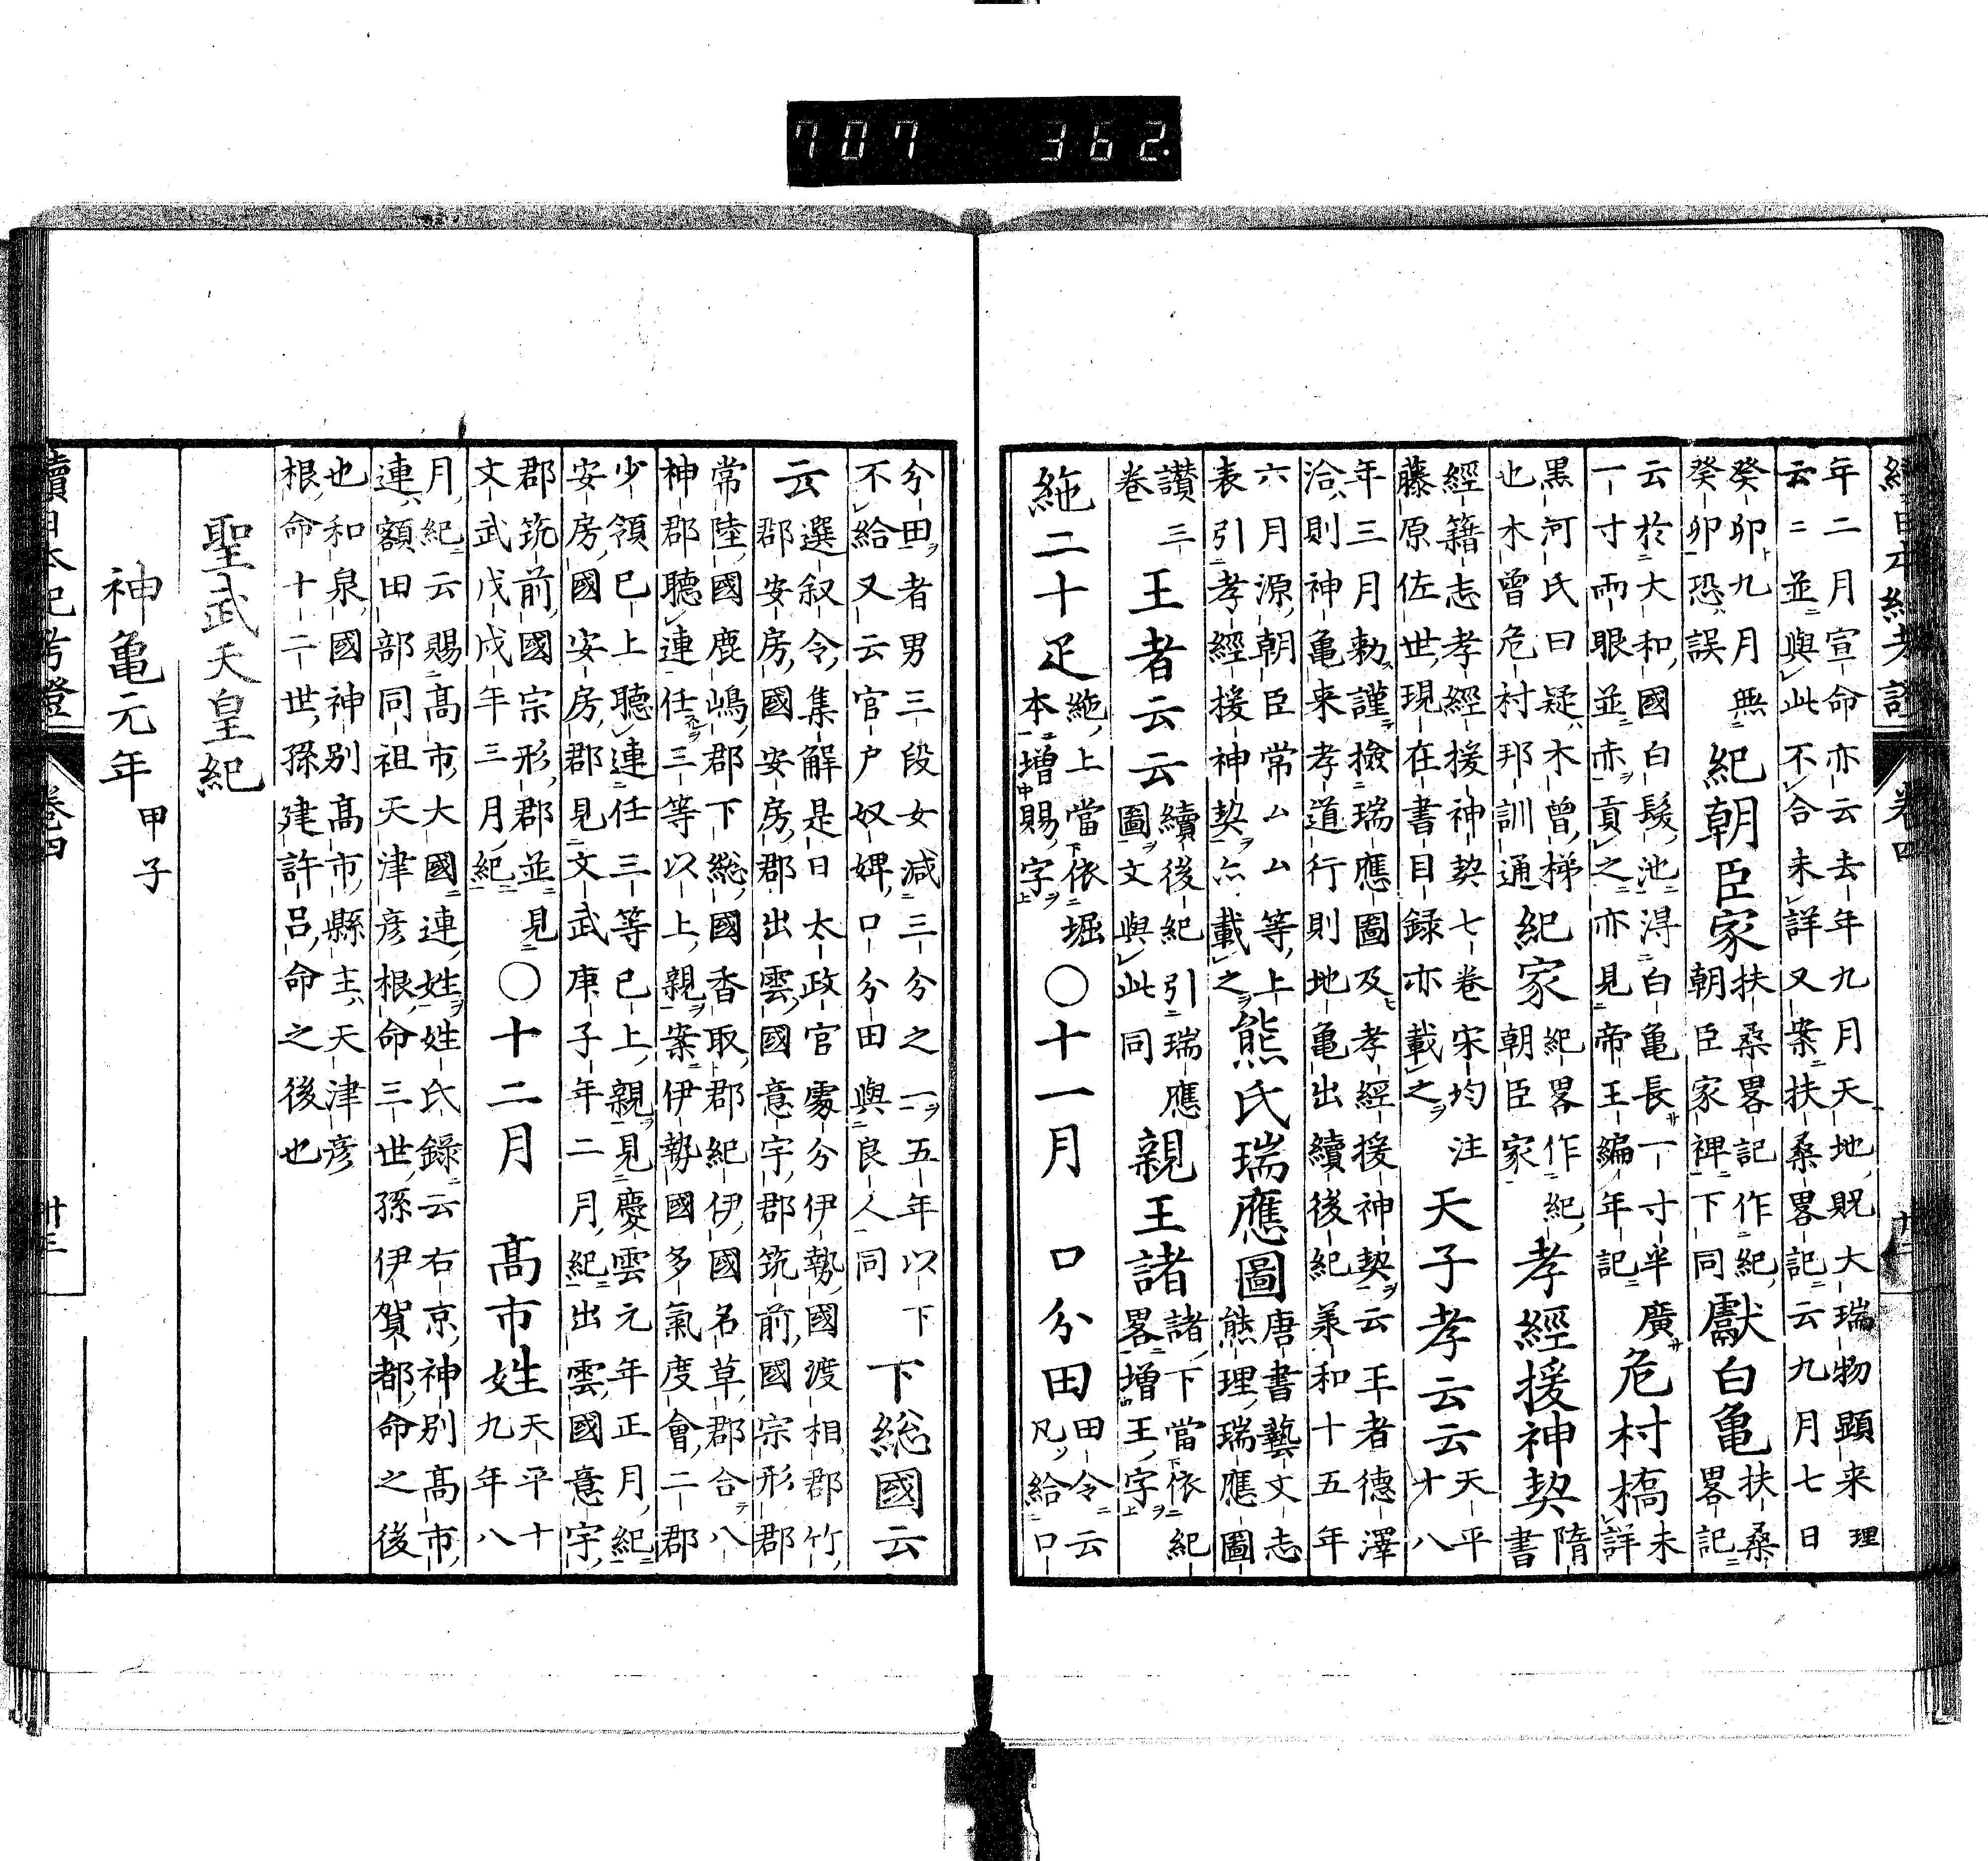 707 362.
續日本紀考證 卷四
年二月宣命亦云去年九月天地貺大瑞物顕来理
云云並與此不合未詳又案扶桑畧記云九月七日
癸卯九月無
癸卯恐誤
紀朝臣家
扶桑畧記作紀
朝臣家裨下同
獻白亀
扶桑
畧記
云於大和國白髪池得白亀長一寸半廣
一寸両眼並亦貢之亦見帝王編年記
危村橋
未
詳
黒河氏曰疑木曾梯
也木曾危村邦訓通
紀家
紀畧作紀
朝臣家
孝經援神契
隋
書
經籍志孝經援神契七卷宋均注
藤原佐世現在書目録亦載之
天子孝云云
天平
十八
年三月勅謹撿瑞應圖及孝經援神契云王者德澤
洽則神亀来孝道行則地亀出續後紀羕和十五年
六月源朝臣常ムム等上
表引孝經援神契亦載之
熊氏瑞應圖
唐書藝文志
熊理瑞應圖
讃三
卷
王者云云
續後紀引瑞應
圖文與此同
親王諸
諸下當依紀
畧増王字
絁二十疋
絁上當依堀
本増賜字
○十一月 口分田
田令云
凡給口
分田者男三段女減三分之一五年以下
不給又云官户奴婢口分田與良人同
下総國云
云
選叙令集解是日太政官處分伊勢國渡相郡竹
郡安房國安房郡出雲國意宇郡筑前國宗形郡
常陸國鹿嶋郡下総國香取郡紀伊國名草郡合八
神郡聴連任三等以上親案伊勢國多氣度會二郡
少領已上聴連任三等已上親見慶雲元年正月紀
安房國安房郡見文武庚子年二月紀出雲國意宇
郡筑前國宗形郡並見
文武戊戌年三月紀
○十二月 髙市姓
天平十
九年八
月紀云賜髙市大國連姓姓氏録云右京神別髙市
連額田部同祖天津彦根命三世孫伊賀都命之後
也和泉國神別髙市縣主天津彦
根命十二世孫建許呂命之後也
聖武天皇紀
神亀元年甲子
續日本紀考證 卷四 廿三